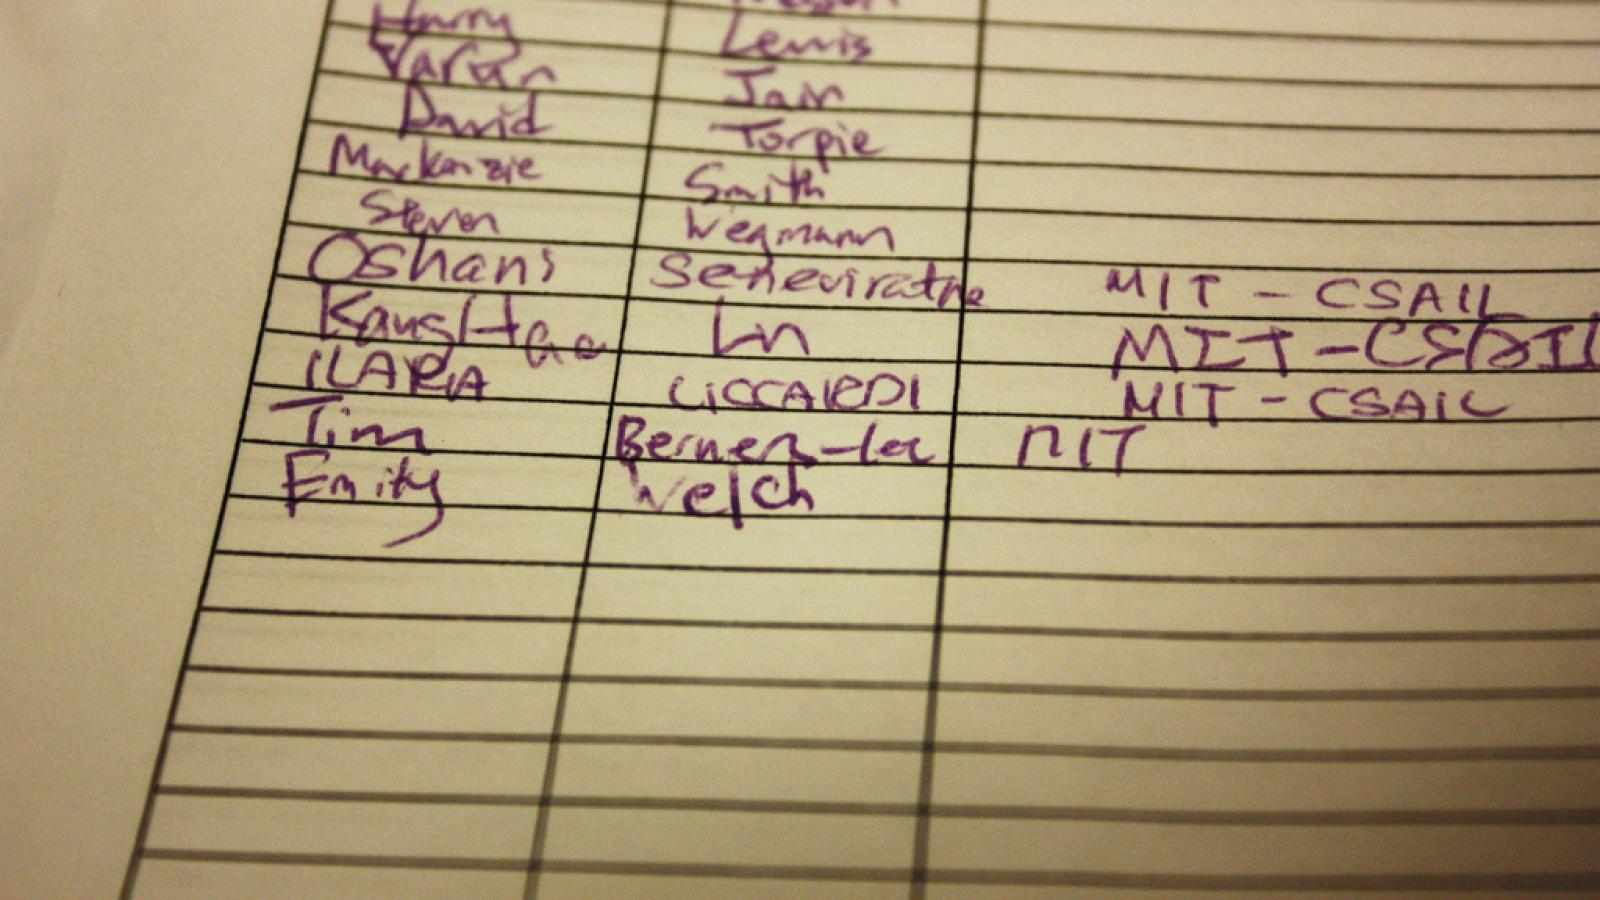 Harry Lewis
Varun Jain
David Torpie
Mackenzie Smith
Steven Wegmann
Oshani Seneviratne MIT - CSAIL
MIT - CSAIL
ILARIA LICCARDI MIT - CSAIL
Tim Berners-Lee MIT
Emily Welch